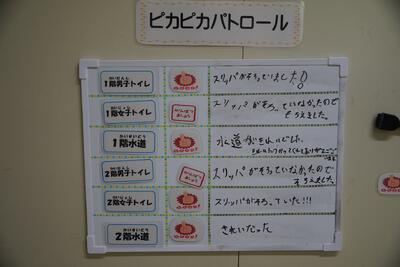 ピカピカパトロール
かいだんし
1階男子トイレ
GOOD!
スリッパがそろっていました!
かいじょし
1階女子トイレ
がんばりましょう
スリッパがそろっていなかったのでそろえました。
かいすいどう
1階水道
GOOD!
水道がきれいでした。
かいだんし
2階男子トイレ
がんばりましょう
スリッパがそろっていなかったので
そろえました。
かいじょし
2階女子トイレ
GOOD!
スリッパがそろっていた!!!
かいすいどう
2階水道
GOOD!
きれいだった